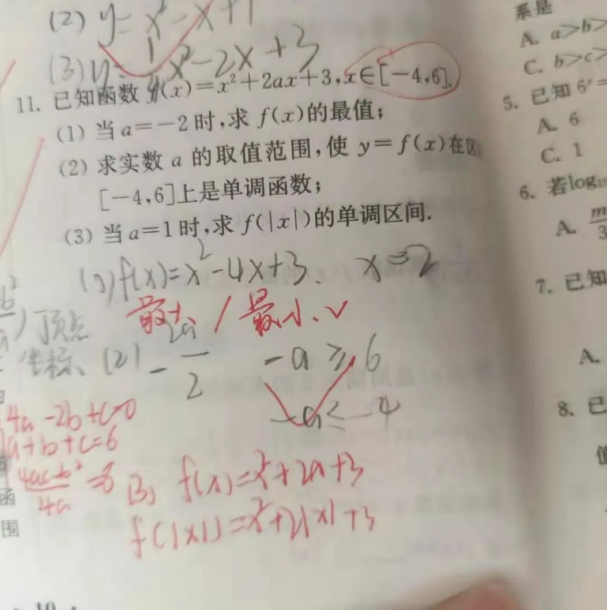 (2) y=x²-x+1
(3) y=½x²-2x+3
11. 已知函数 f(x)=x²+2ax+3,x∈[-4,6].
(1) 当 a=-2 时,求 f(x)的最值;
(2) 求实数 a 的取值范围,使 y=f(x)在区
[-4,6]上是单调函数;
(3) 当 a=1 时,求 f(|x|)的单调区间.
(1) f(x)=x²-4x+3. x=2
最大 / 最小.√
顶点
坐标. (2) -2a/2 -a≥6
-a≤-4
4a-2b+c=0
a+b+c=6
(4ac-b²)/4a=6
(3) f(x)=x²+2x+3
f(|x|)=x²+2|x|+3
函
围
· 10 ·
系是
A. a>b>
C. b>c>
5. 已知 6ˣ=
A. 6
C. 1
6. 若log
A. m/3
7. 已知
A.
8. 已